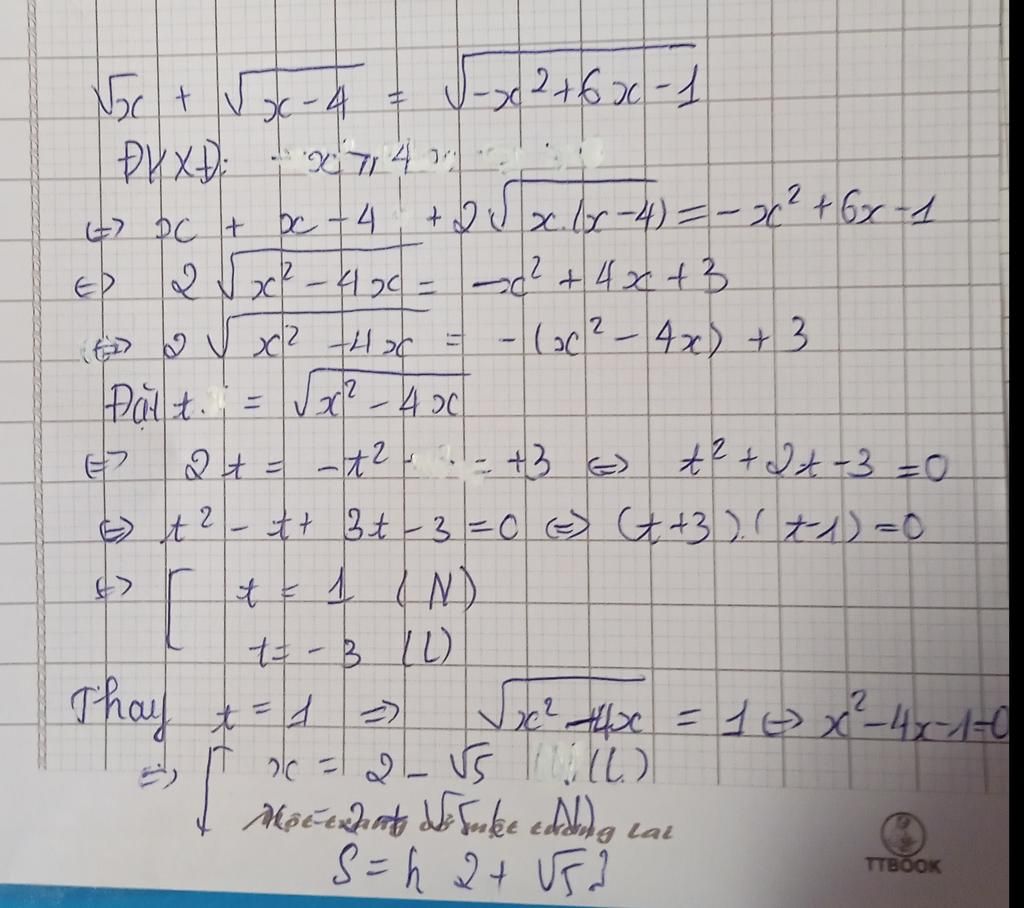 √x + √(x-4) = √(-x²+6x-1)
ĐKXĐ: x ≥ 4
<=> x + x - 4 + 2√(x.(x-4)) = -x² + 6x - 1
<=> 2√(x² - 4x) = -x² + 4x + 3
<=> 2√(x² - 4x) = -(x² - 4x) + 3
Đặt t = √(x² - 4x)
<=> 2t = -t² = +3 <=> t² + 2t - 3 = 0
<=> t² - t + 3t - 3 = 0 <=> (t+3).(t-1) = 0
<=> [ t = 1 (N)
t = -3 (L)
Thay t = 1 => √(x² - 4x) = 1 <=> x² - 4x - 1 = 0
=> [ x = 2 - √5 (L)
x = 2 + √5 (N)
S = { 2 + √5 }
TTBOOK